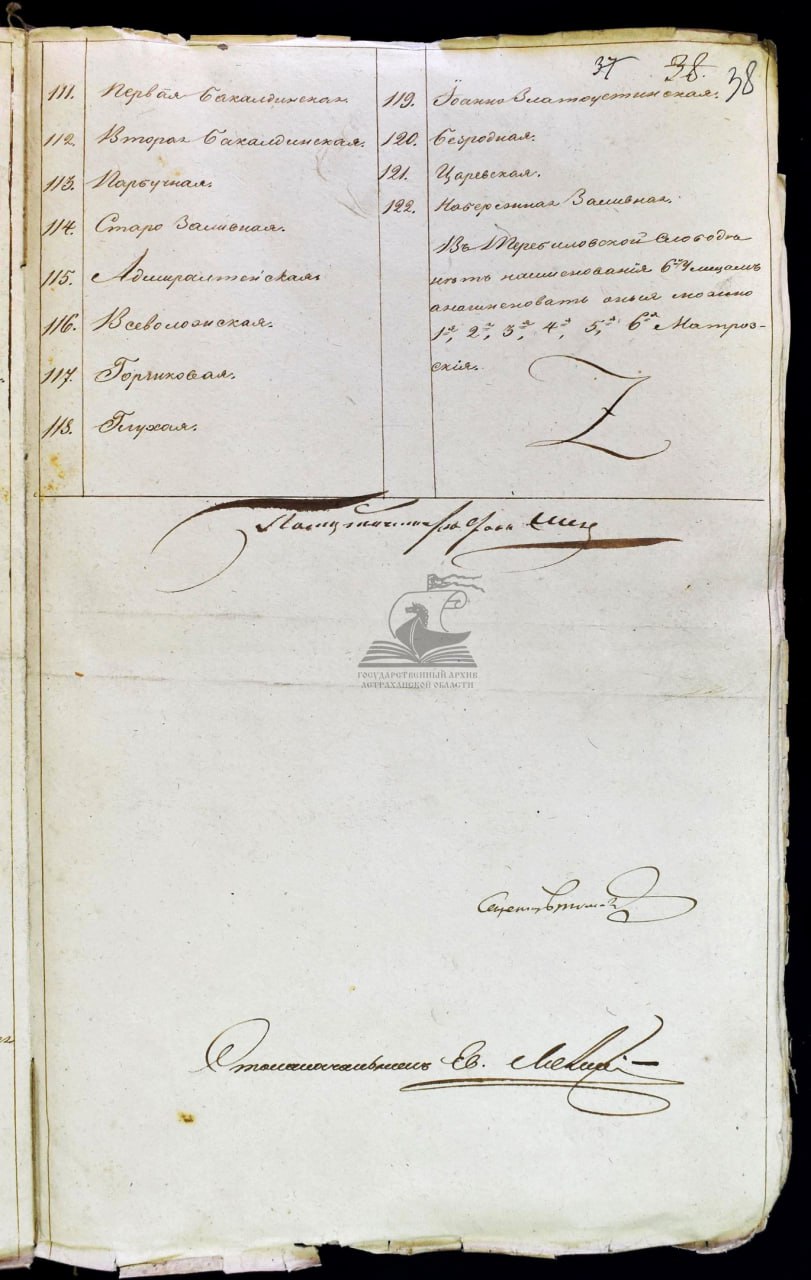 37 38. 38
111. Первая Бакалдинская.
112. Вторая Бакалдинская.
113. Парбучная.
114. Старо Заливная.
115. Адмиралтейская.
116. Всеволожская.
117. Горчиковая.
118. Глухая.
119. Іоанно Златоустинская.
120. Безродная.
121. Царевская.
122. Набережная Заливная.
Въ Теребиловской слободкѣ
нѣтъ наименованія 6ти улицамъ
а наименовать оныя можно
1я, 2я, 3я, 4я, 5я, 6я Матроз-
скія.
ГОСУДАРСТВЕННЫЙ АРХИВ
АСТРАХАНСКОЙ ОБЛАСТИ
Столоначальникъ